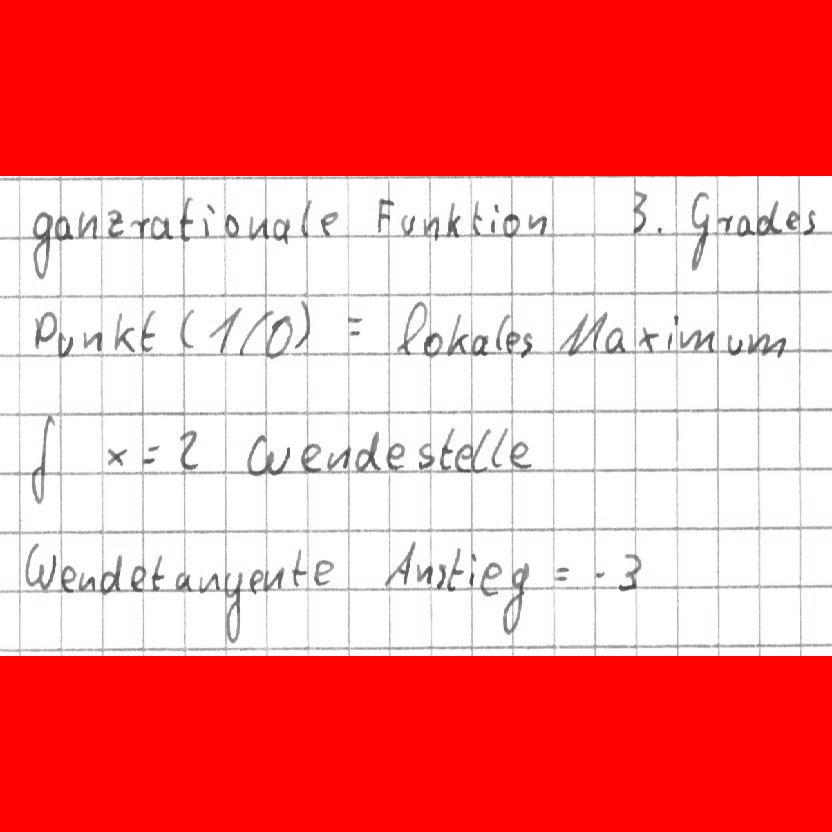 ganzrationale Funktion 3. Grades
Punkt (1/0) = lokales Maximum
f x = 2 Wendestelle
Wendetangente Anstieg = -3